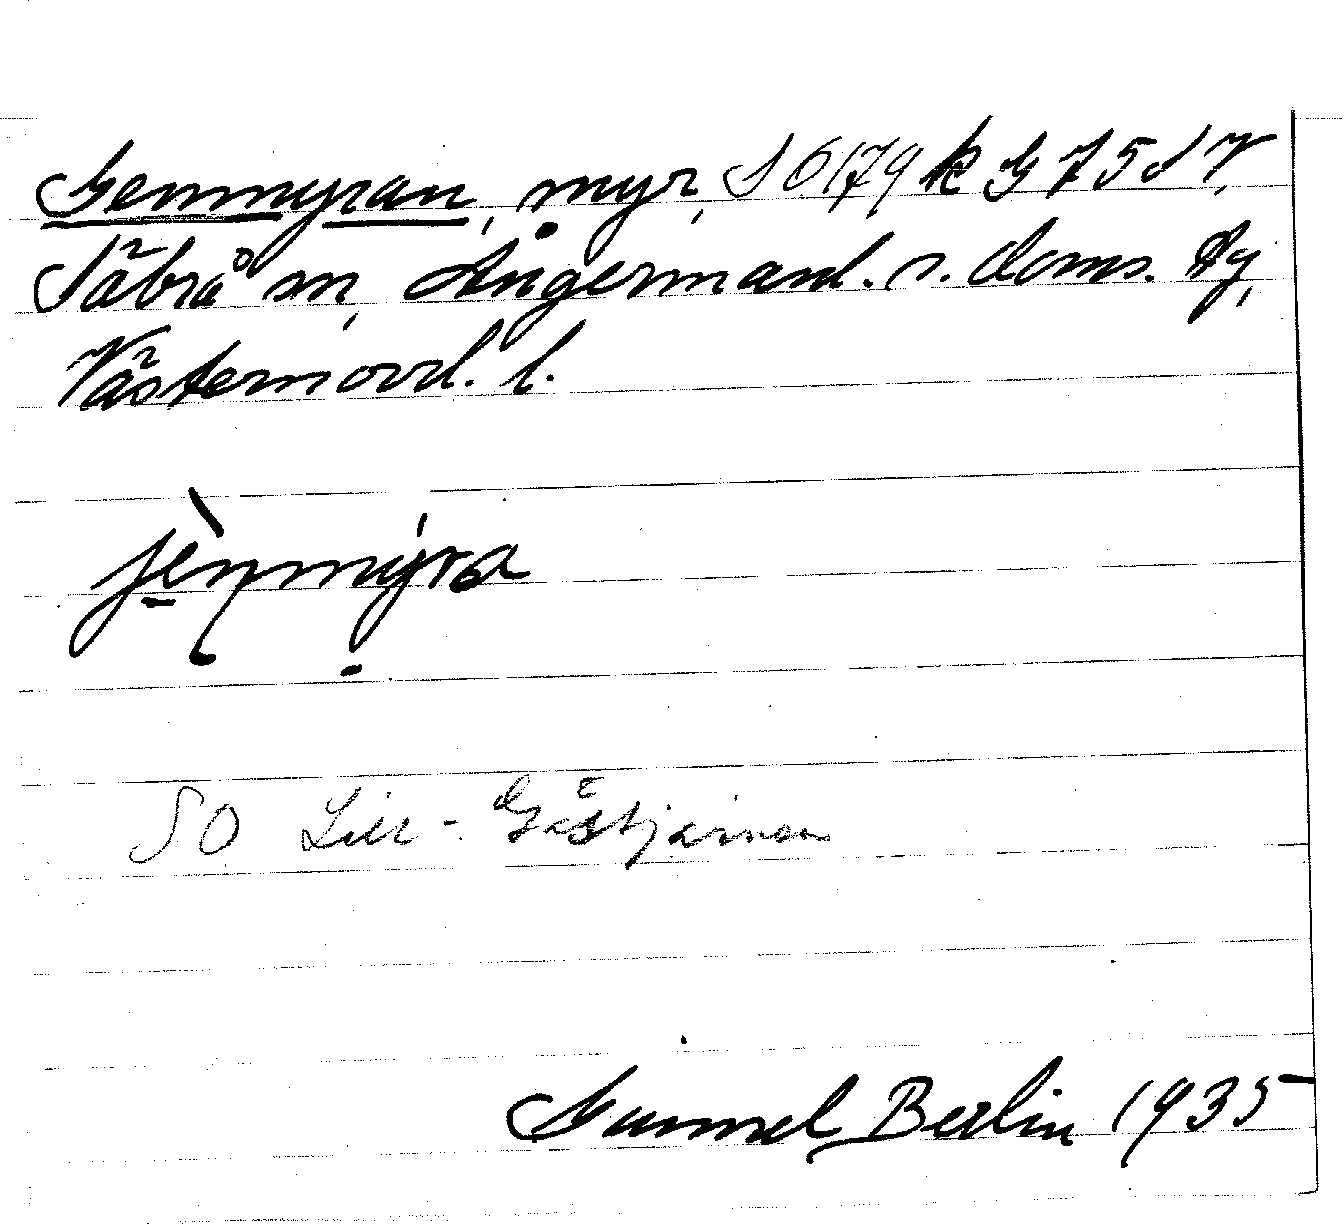 Genmyran, myr, S 6179 k G 7 5 d V,
Säbrå sn, Ångermanl. s. doms. tg,
Västernorrl. l.
jènmýra
SO Lill-Gåstjärnen
Gunnel Berlin 1935